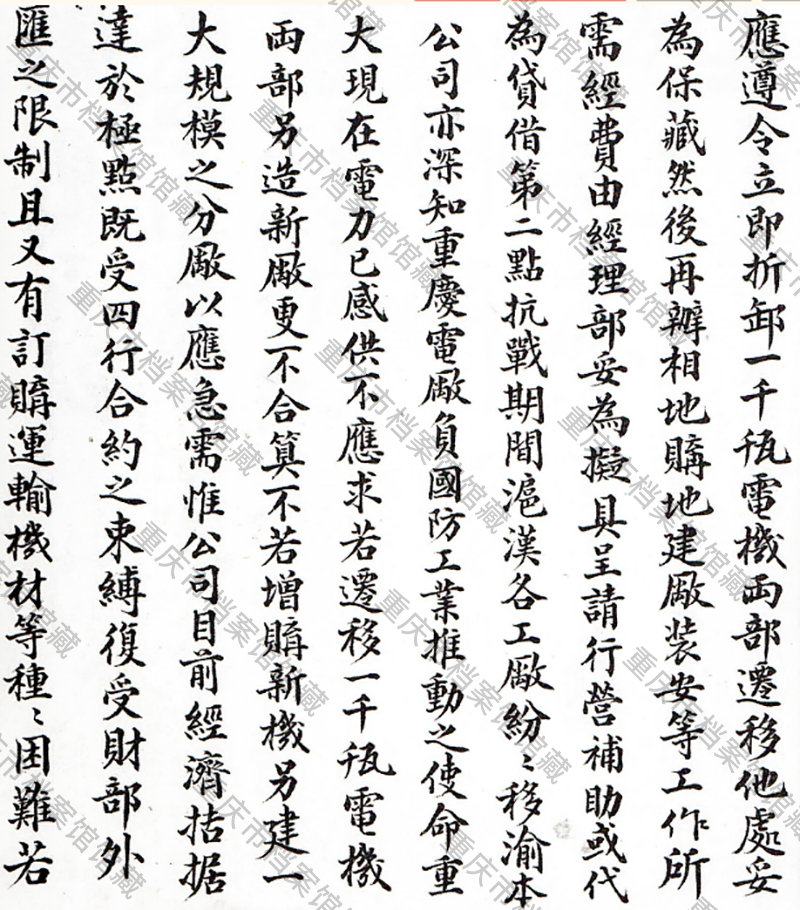 應遵令立即折卸一千瓩電機兩部遷移他處妥
為保藏然後再辦相地購地建廠裝安等工作所
需經費由經理部妥為擬具呈請行營補助或代
為貸借第二點抗戰期間滬漢各工廠紛〻移渝本
公司亦深知重慶電廠負國防工業推動之使命重
大現在電力已感供不應求若遷移一千瓩電機
兩部另造新廠更不合算不若增購新機另建一
大規模之分廠以應急需惟公司目前經濟拮据
達於極點既受四行合約之束縛復受財部外
匯之限制且又有訂購運輸機材等種〻困難若
重庆市档案馆馆藏